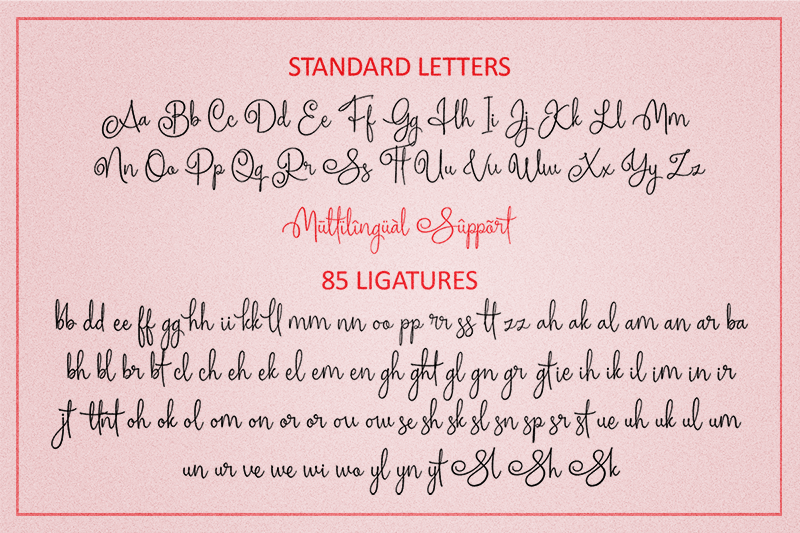 STANDARD LETTERS
Aa Bb Cc Dd Ee Ff Gg Hh Ii Jj Kk Ll Mm
Nn Oo Pp Qq Rr Ss Tt Uu Vv Ww Xx Yy Zz
Mūttïlîngüàl Sûppõrt
85 LIGATURES
bb dd ee ff gg hh ii kk ll mm nn oo pp rr ss tt zz ah ak al am an ar ba
bh bl br bt cl ch eh ek el em en gh ght gl gn gr gt ie ih ik il im in ir
jt tt nt oh ok ol om on or or ou ow se sh sk sl sn sp sr st ue uh uk ul um
un ur ve we wi wo yl yn yt Sl Sh Sk